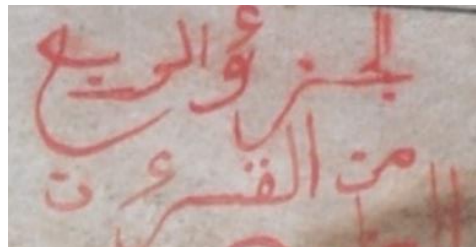 الجزؤ الربع
من القرءن